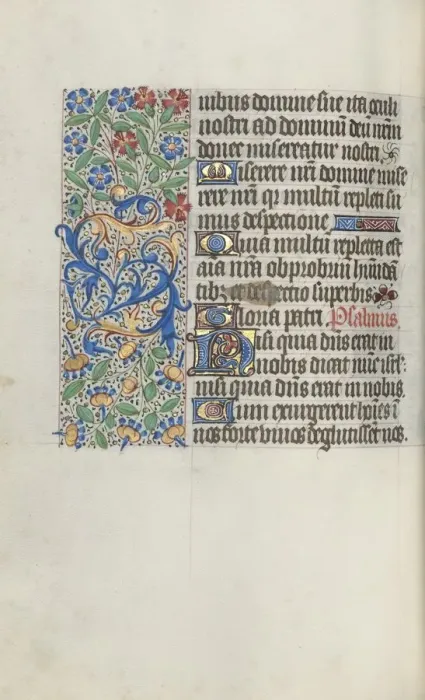 nibus domine sue ita oculi
nostri ad dominū deū nrm̄
donec misereatur nostri
Miserere nrī domine mise
rere nrī qr multū repleti su
mus despectione
Quia multū repleta est
aīa nrā obprobriū hūndā
tibz et despectio superbis
Gloria patri Psalmus.
Nisi quia dn̄s erat in
nobis dicat nūc isrl̄:
nisi quia dn̄s erat in nobis.
Cum exurgerent hoīes ī
nos forte vivos deglutissēt nos.